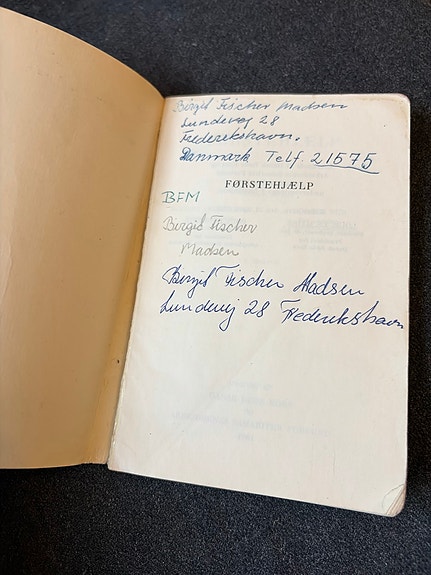 Birgit Fischer Madsen
Lundevej 28
Frederikshavn.
Danmark Telf. 21575
FØRSTEHJÆLP
BFM
Birgit Fischer
Madsen
Birgit Fischer Madsen
Lundevej 28 Frederikshavn